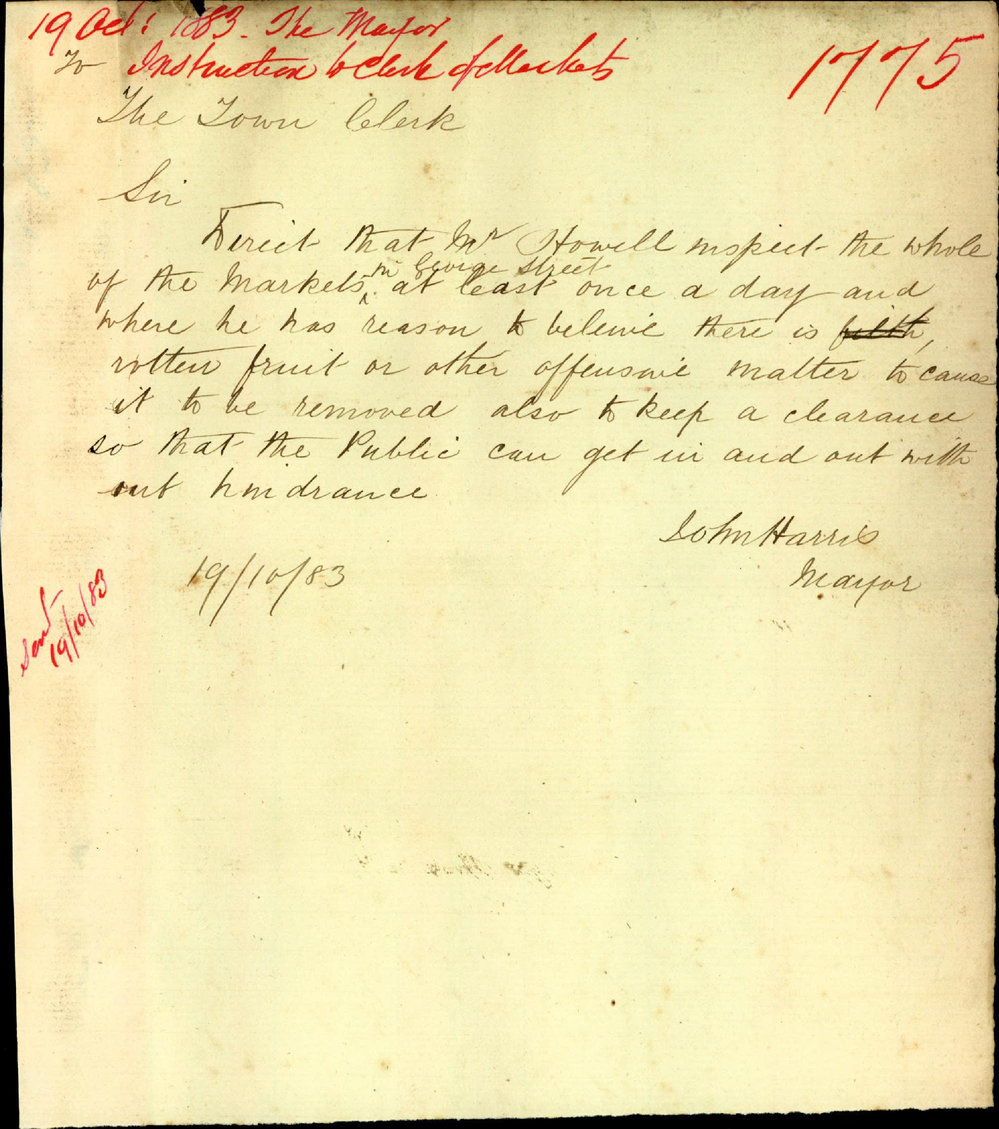 19 Oct: 1883. The Mayor
To Instruction to Clerk of Markets
1775
The Town Clerk
Sir
Direct that Mr Howell inspect the whole
of the Markets in George Street at least once a day and
where he has reason to beleive there is filth,
rotten fruit or other offensive matter to cause
it to be removed also to keep a clearance
so that the Public can get in and out with
out hindrance
John Harris
Mayor
19/10/83
Sent
19/10/83